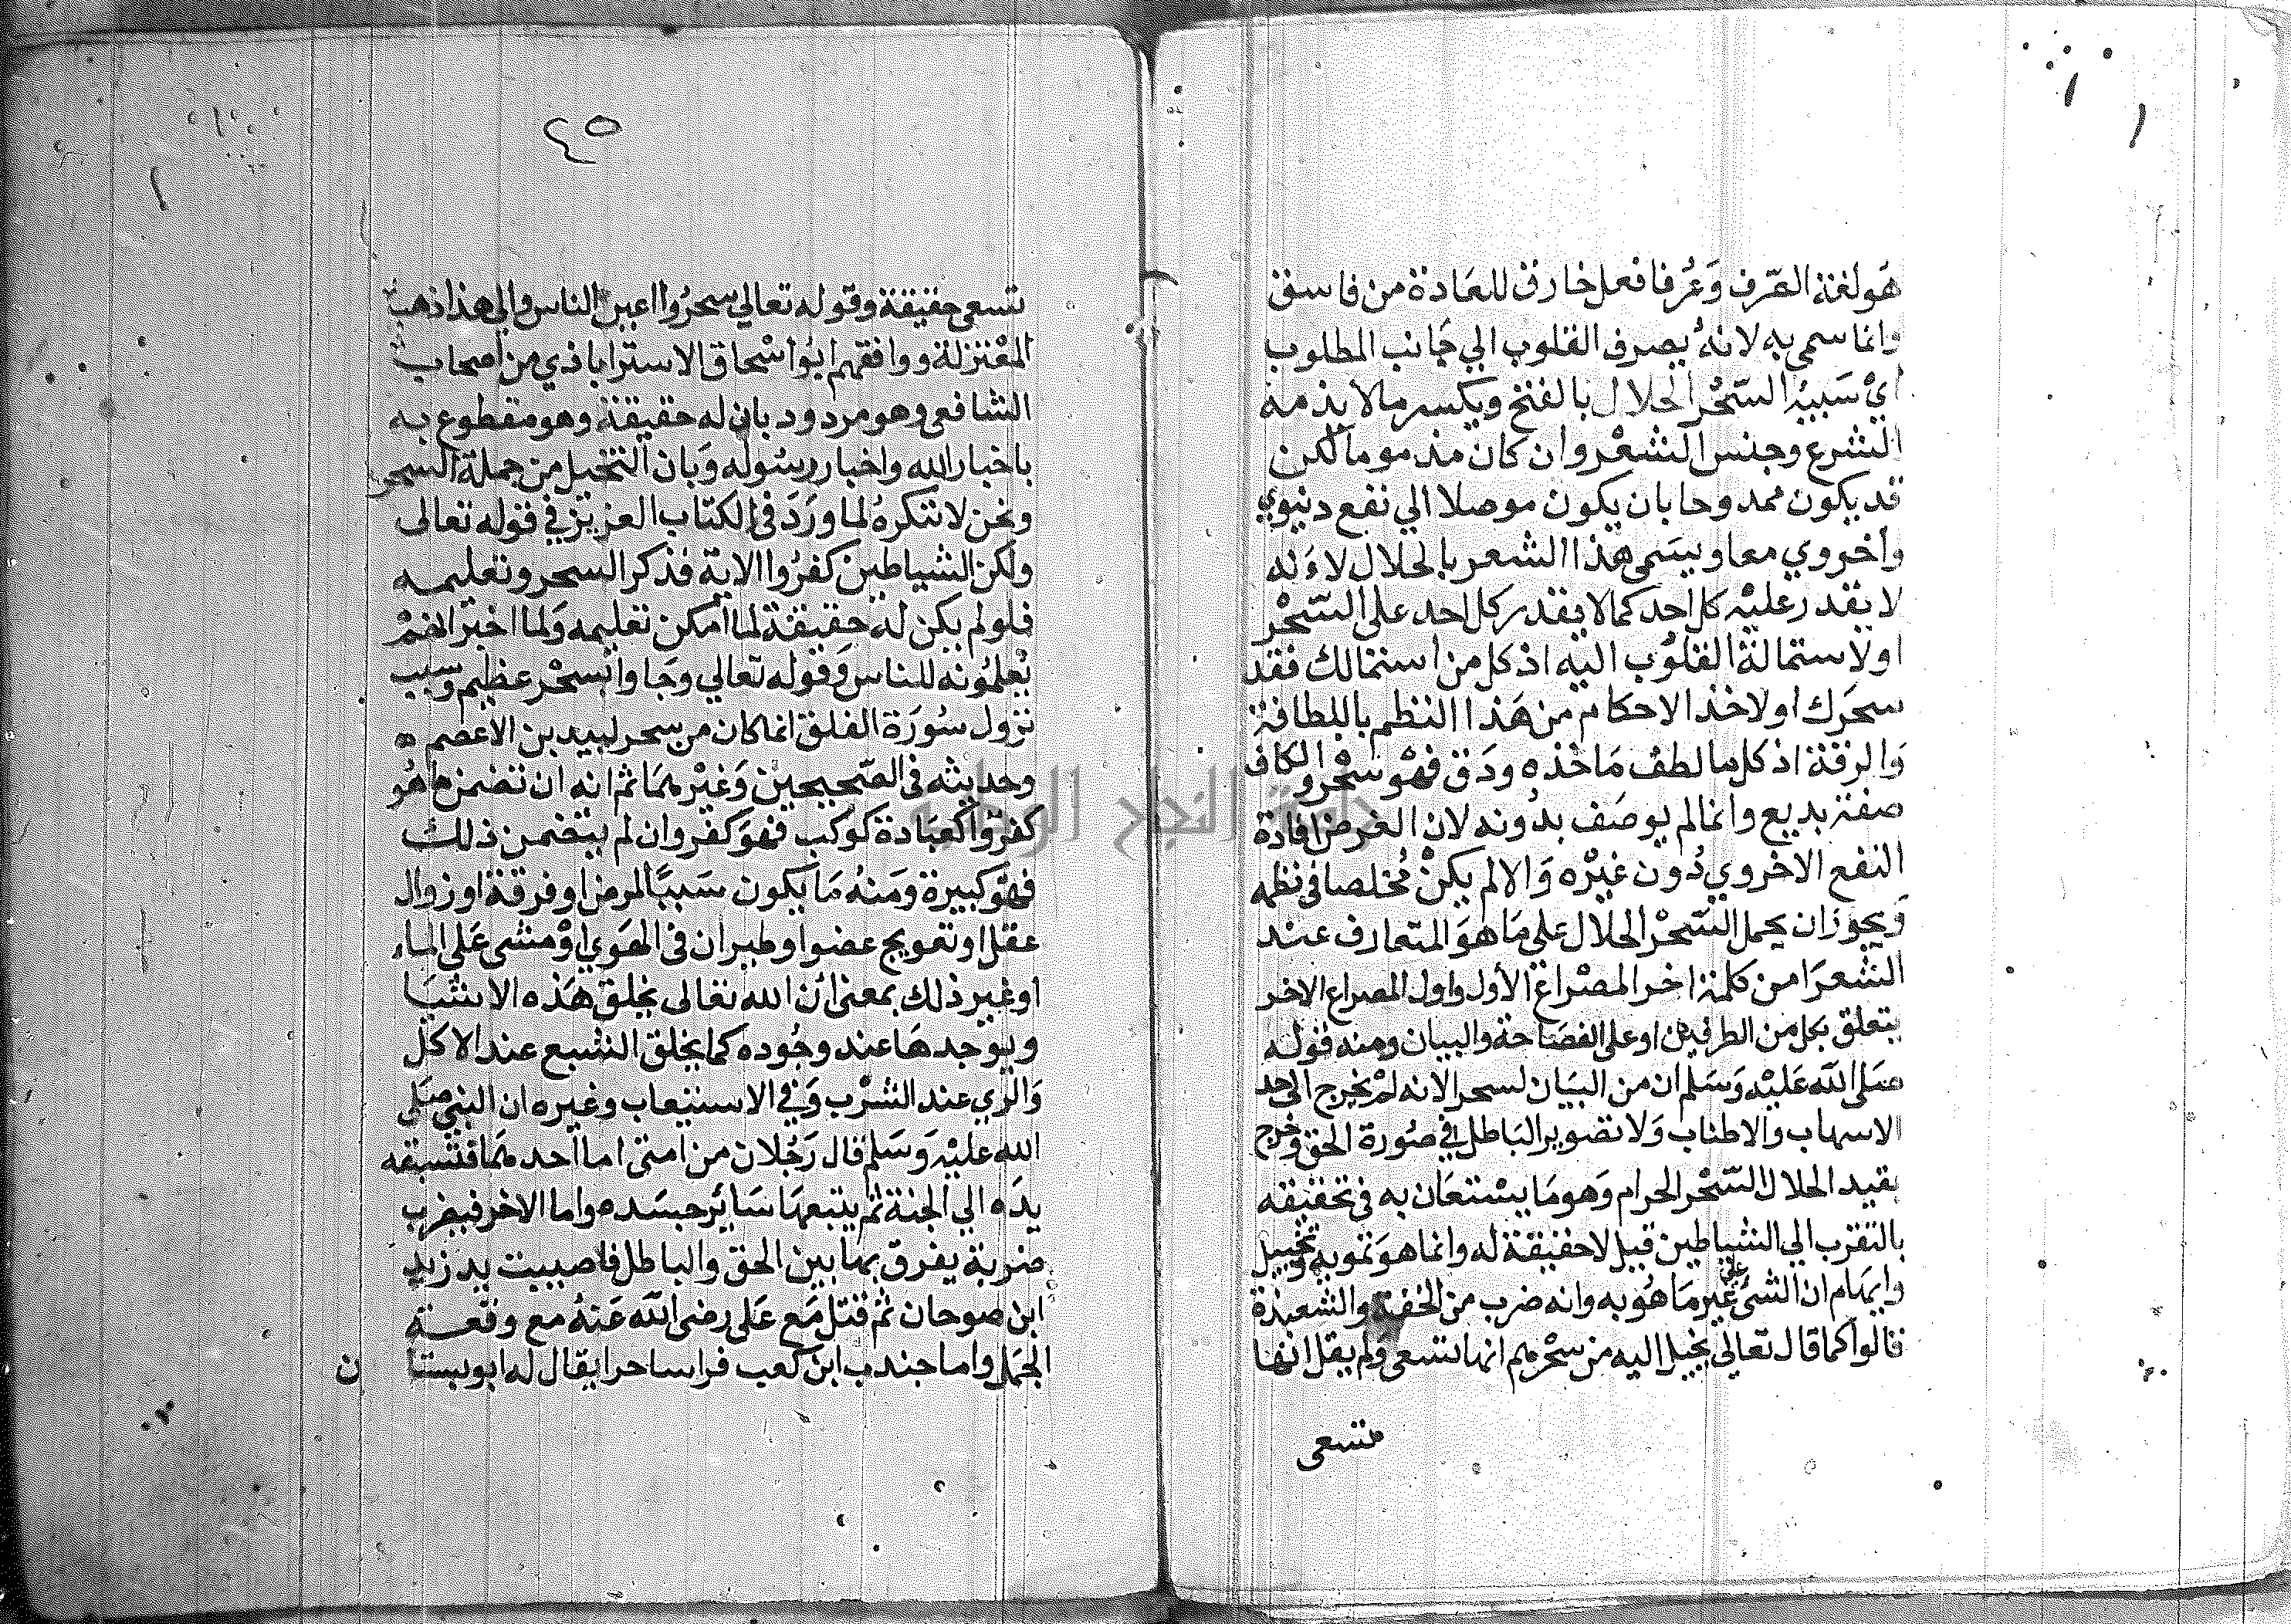 هو لغة الصّرف وَعُرفا فعل خارق للعَادة من فاسق
وانما سمي به لانهُ يصرف القلوب الي جَانب المطلوب
ايْ سَببيْه السّحْر الحلال بالفتح ويكسر مالا يذمه
الشرع وجنس الشعْر وان كان مذموما لكن
قد يكون ممدوحا بان يكون موصلا الي نفع دنيوي
وأخروي معا ويسَمى هَذا الشعر بالحلال لاءنه
لا يقدر عليْه كل احد كما لا يقدر كل احد على السّحْر
اولاستمالة القلوُب اليه اذ كل من استمالك فقد
سحَرك اولاخذ الاحكام من هَذا النظم باللطافة
وَالرقة اذ كل ما لطف مَاخذه ودَق فهْو سحْر والكاف
صفة بديع وانما لم يوصَف بدُونه لان الغرض افادة
النفع الاخروي دُون غيْره وَالا لم يكنْ مُخلصا في نظمه
وَيجوزان يحمل السّحْر الحلال علي مَا هوَ المتعارف عند
الشعرَا من كلمة اخر المصْراع الأول واول المصراع الاخر
يتعلق بكل من الطرفين او على الفصَاحة والبيان ومنه قوله
صَلى الله عَليْه وَسَلم ان من البيَان لسحرا لانه لمْ يخرج الى حد
الاسهاب والاطناب وَلا تصوير البَاطل في صُورة الحق وخرج
بقيد الحلال السّحْر الحرام وَهو مَا يسْتعَان به في تحقيقه
بالتقرب الي الشياطين قيل لا حقيقة له وانما هوَ تمويه وتخييل
وايهَام ان الشئ علي غير مَا هُو به وانه ضرب من الخفة والشعبذة
قالوا كما قال تعالي يخيل اليه من سحْرهم انها تسعى وَلم يقل انها
تسعى
٤٥
تسعى حقيقة وقوله تعالي سحرُوا اعين الناس والي هذا ذهب
المعْتزلة ووافقهم ابُو اسْحاق الاستراباذي من اصحاب
الشافعي وهو مردود بان له حقيقة وهو مقطوع به
باخبار الله واخبار رسُوله وَبان التخيل من جملة السحر
ونحن لا ننكرهُ لما ورَدَ في الكتاب العزيز في قوله تعالى
ولكن الشياطين كفرُوا الاية فذكر السحر وتعليمه
فلو لم يكن له حقيقة لما أمكن تعليمه وَلما اخبر انهمْ
يُعلمُونه للناس وَقوله تعالي وجَاوا بسحْر عظيم وسبب
نزول سُورَة الفلق انما كان من سحر لبيد بن الاعصم ه
وحديثه في الصّحيحين وَغيْرهمَا ثم انه ان تضمن ما هُو
كفرٌ كعبَادة كوكب فهوَ كفر وان لم يتضمن ذلك
فهوَ كبيرة ومَنهُ مَا يكون سَببًا لمرض او فرقة او زوال
عقل او تعويج عضو او طيران في الهَوي اوْ مشى عَلى الماء
او غير ذلك بمعنى أن الله تعالى يخلق هَذه الاشيَا
ويوجدهَا عند وجُوده كما يخلق الشبع عند الاكل
وَالرّي عند الشرْب وَفي الاستيعاب وغيره ان النبي صَلى
الله عليْه وَسَلم قال رَجُلان من امتى اما أحدهمَا فتسبقه
يدَه الي الجنة ثم يتبعهَا سَايرَ جسَده واما الاخر فيضرب
ضربة يفرق بها بين الحق والباطل فاصيبت يد زيد
ابن صوحان ثم قتل مَع عَلى رضى الله عَنهُ مع وقعة
الجمَل واما جندب ابن كعب فراسا حرا يقال له ابو بستا ن